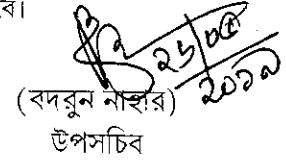 বে।
২৬/০৫
২০১৯
(বদরুন নাহার)
উপসচিব